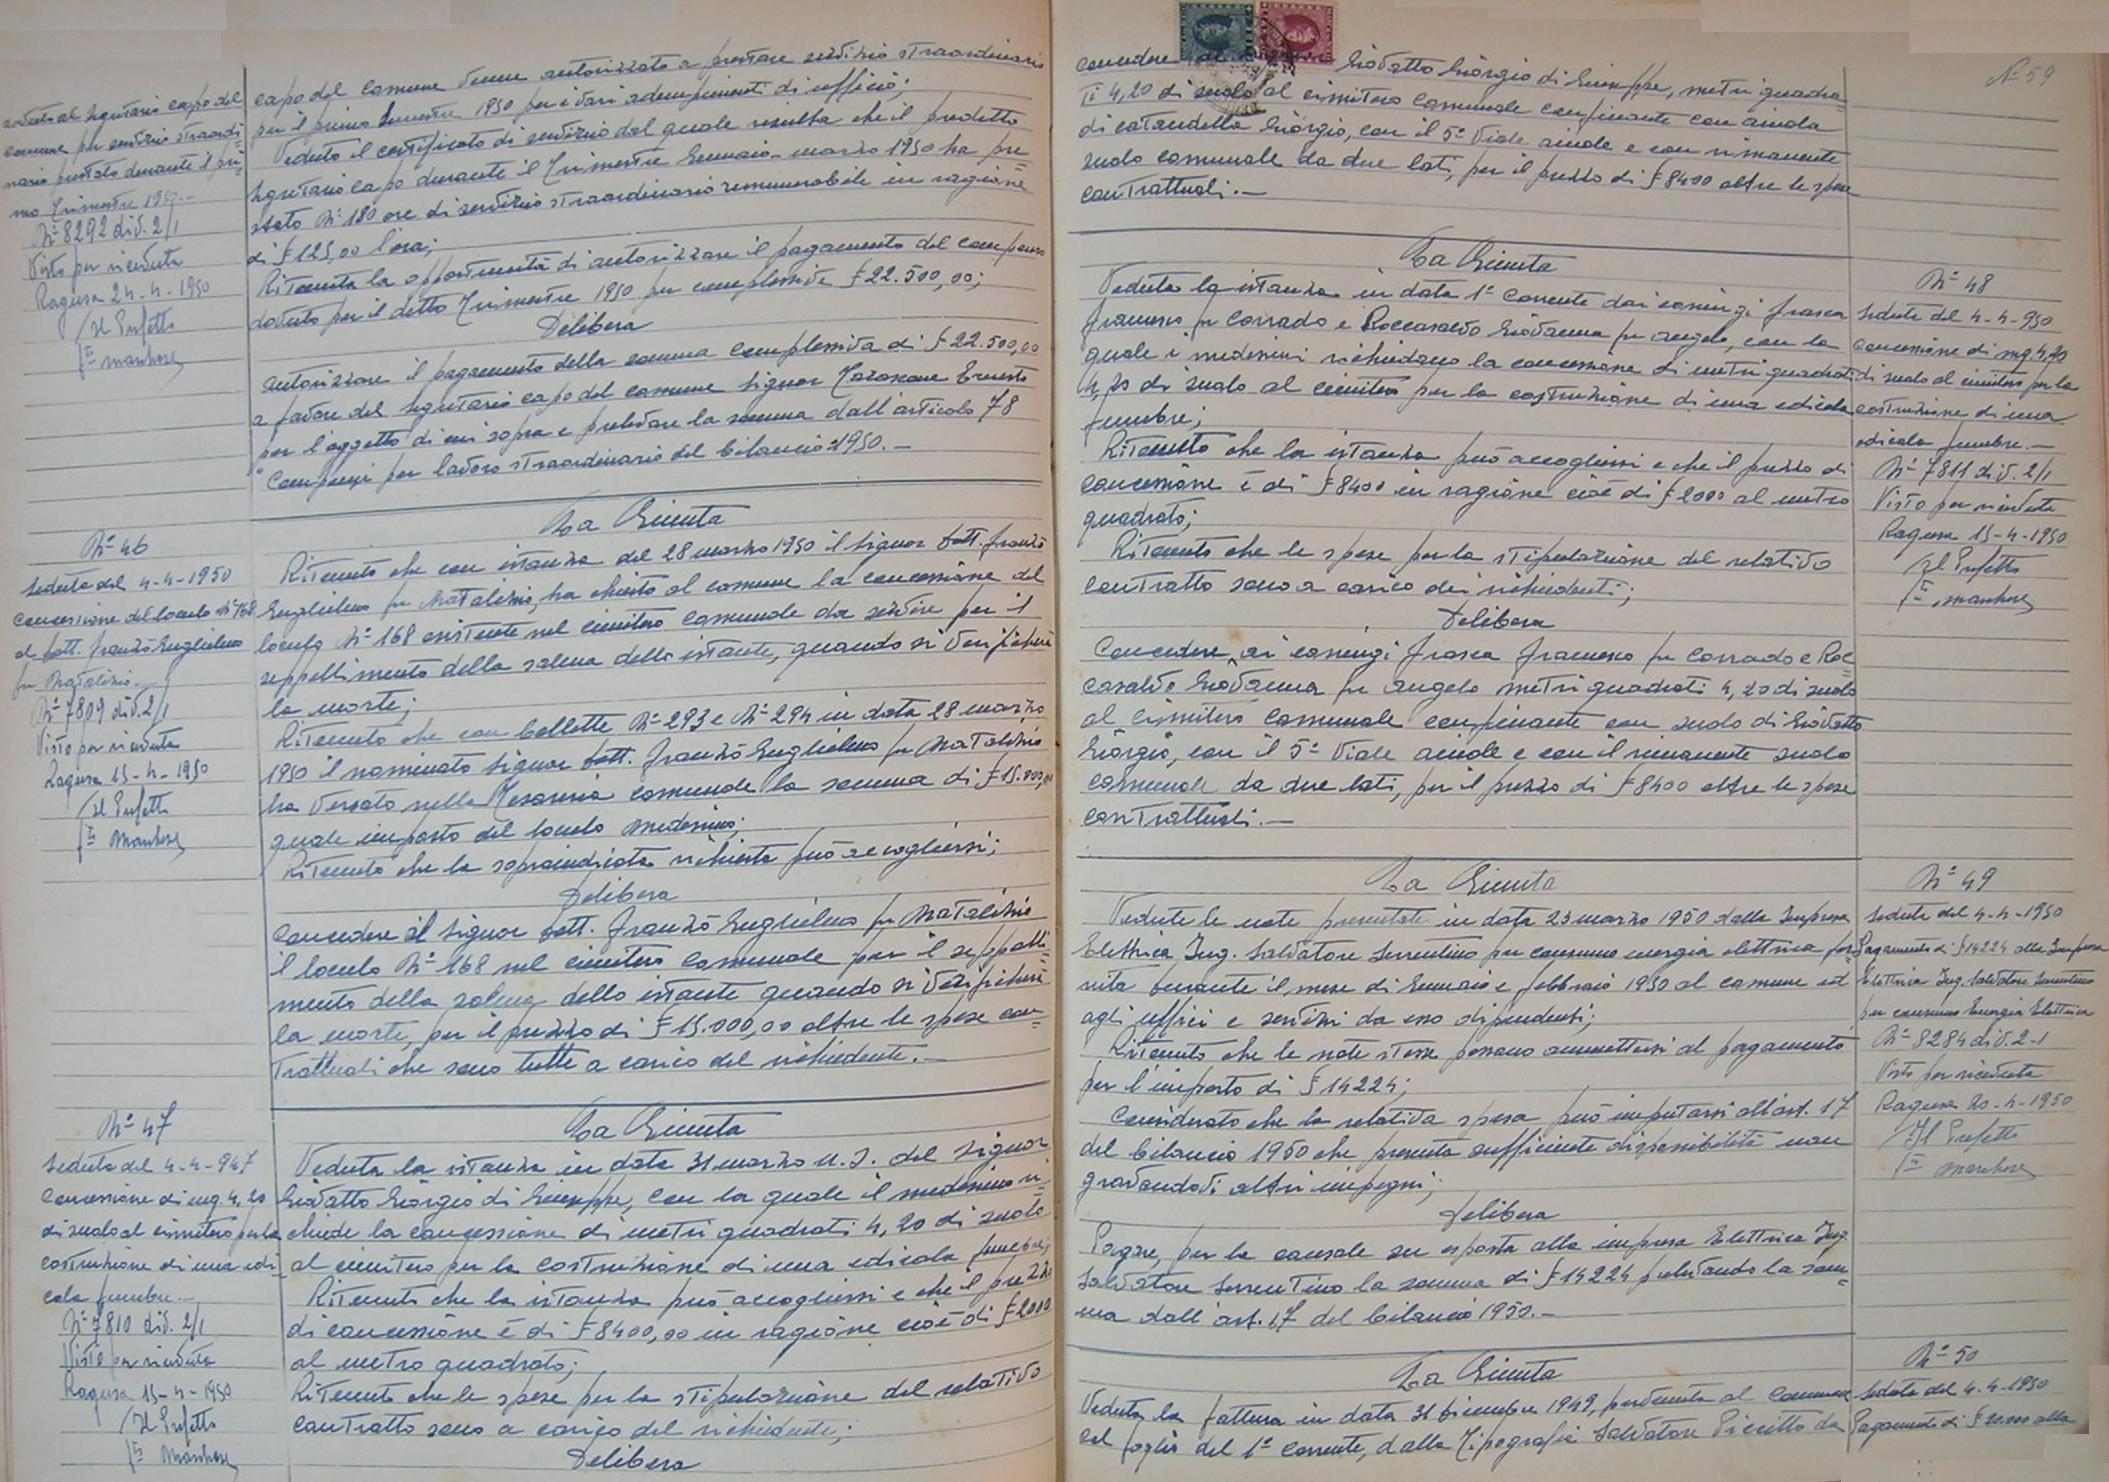 dovuto al Segretario capo del
comune per servizio straordi=
nario prestato durante il pri=
mo Trimestre 1950.-
N° 8292 div. 2/1
Visto per ricevuta
Ragusa 24-4-1950
Il Prefetto
manhose
capo del Comune venne autorizzato a prestare servizio straordinario
per il primo Semestre 1950 per i vari adempimenti di ufficio;
Veduto il certificato di servizio dal quale risulta che il predetto
Segretario capo durante il Trimestre Gennaio-marzo 1950 ha pre=
stato N° 180 ore di servizio straordinario remunerabile in ragione
di £ 125,00 l'ora;
Ritenuta la opportunità di autorizzare il pagamento del compenso
dovuto per il detto Trimestre 1950 per complessive £ 22.500,00;
Delibera
autorizzare il pagamento della somma complessiva di £ 22.500,00
a favore del Segretario capo del comune Signor Ernesto
per l'oggetto di cui sopra e prelevare la somma dall'articolo 78
"Compensi per lavoro straordinario del bilancio 1950.-
N° 46
Seduta del 4-4-1950
Concessione del loculo N° 168
al Dott. Franzò Guglielmo
fu Natalizio.-
N° 7809 div. 2/1
Visto per ricevuta
Ragusa 15-4-1950
Il Prefetto
manhose
La Giunta
Ritenuto che con istanza del 28 marzo 1950 il Signor Dott. Franzò
Guglielmo fu Natalizio, ha chiesto al comune la concessione del
loculo N° 168 esistente nel cimitero comunale da servire per il
seppellimento della salma dello istante, quando si verificherà
la morte;
Ritenuto che con bollette N° 293 e N° 294 in data 28 marzo
1950 il nominato Signor Dott. Franzò Guglielmo fu Natalizio
ha versato nella Tesoreria comunale la somma di £ 15.000,00
quale importo del loculo medesimo;
Ritenuto che la sopraindicata richiesta può accogliersi;
Delibera
Concedere al Signor Dott. Franzò Guglielmo fu Natalizio
il loculo N° 168 nel cimitero comunale per il seppelli=
mento della salma dello istante quando si verificherà
la morte, per il prezzo di £ 15.000,00 oltre le spese con=
trattuali che sono tutte a carico del richiedente.-
N° 47
Seduta del 4-4-947
Concessione di mq. 4,20
di suolo al cimitero per la
costruzione di una edi=
cola funebre.-
N° 7810 div. 2/1
Visto per ricevuta
Ragusa 15-4-1950
Il Prefetto
manhose
La Giunta
Veduta la istanza in data 31 marzo u.s. del Signor
Giovatto Giorgio di Giuseppe, con la quale il medesimo ri=
chiede la concessione di metri quadrati 4,20 di suolo
al cimitero per la costruzione di una edicola funebre;
Ritenuto che la istanza può accogliersi e che il prezzo
di concessione è di £ 8400,00 in ragione cioè di £ 2000
al metro quadrato;
Ritenuto che le spese per la stipulazione del relativo
contratto sono a carico del richiedente;
Delibera
N° 59
concedere al Giovatto Giorgio di Giuseppe, metri quadra=
ti 4,20 di suolo al cimitero comunale confinante con aiuola
di Cataudella Giorgio, con il 5° Viale aiuole e con rimanente
suolo comunale da due lati, per il prezzo di £ 8400 oltre le spese
contrattuali.-
La Giunta
Veduta la istanza in data 1° corrente dai coniugi Frasca
Francesco fu Corrado e Roccasalvo Giovanna fu Angelo, con la
quale i medesimi richiedono la concessione di metri quadrati
4,20 di suolo al cimitero per la costruzione di una edicola
funebre;
Ritenuto che la istanza può accogliersi e che il prezzo di
concessione è di £ 8400 in ragione cioè di £ 2000 al metro
quadrato;
Ritenuto che le spese per la stipulazione del relativo
contratto sono a carico dei richiedenti;
Delibera
Concedere ai coniugi Frasca Francesco fu Corrado e Roc=
casalvo Giovanna fu Angelo metri quadrati 4,20 di suolo
al cimitero comunale confinante con suolo di Giovatto
Giorgio, con il 5° Viale aiuole e con il rimanente suolo
comunale da due lati, per il prezzo di £ 8400 oltre le spese
contrattuali.-
N° 48
Seduta del 4-4-950
Concessione di mq. 4,20
di suolo al cimitero per la
costruzione di una
edicola funebre.-
N° 7811 div. 2/1
Visto per ricevuta
Ragusa 15-4-1950
Il Prefetto
manhose
La Giunta
Vedute le note presentate in data 23 marzo 1950 dalla Impresa
Elettrica Ing. Salvatore Sorrentino per consumo energia elettrica for=
nita durante il mese di Gennaio e febbraio 1950 al comune ed
agli uffici e servizi da esso dipendenti;
Ritenuto che le note stesse possano ammettersi al pagamento
per l'importo di £ 14224;
Considerato che la relativa spesa può imputarsi all'art. 17
del bilancio 1950 che presenta sufficiente disponibilità non
gravandovi altri impegni;
Delibera
Pagare, per la causale su esposta alla impresa Elettrica Ing.
Salvatore Sorrentino la somma di £ 14224 prelevando la som=
ma dall'art. 17 del bilancio 1950.-
N° 49
Seduta del 4-4-1950
Pagamento di £ 14224 alla Impresa
Elettrica Ing. Salvatore Sorrentino
per consumo Energia Elettrica
N° 8284 div. 2-1
Visto per ricevuta
Ragusa 20-4-1950
Il Prefetto
manhose
La Giunta
Veduta la fattura in data 31 dicembre 1949, pervenuta al Comune
col foglio del 1° corrente, dalla Tipografia Salvatore Piccitto da
N° 50
Seduta del 4-4-1950
Pagamento di £ alla